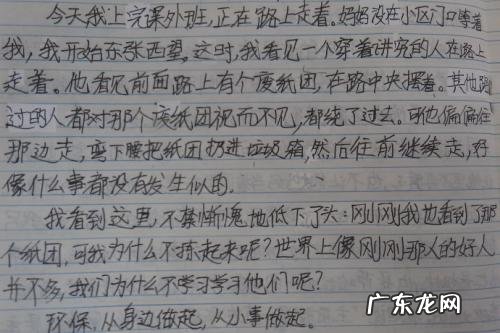 今天我上完课外班,正在路上走着。妈妈没在小区门口等着
我,我开始东张西望。这时,我看见一个穿着讲究的人在路上
走着。他看见前面路上有个废纸团,在路中央摆着。其他路
过的人都对那个废纸团视而不见,都绕了过去。可他偏偏往
那边走,弯下腰把纸团扔进垃圾箱,然后往前继续走,好
像什么事都没有发生似的.
我看到这里,不禁惭愧地低下了头:刚刚我也看到了那
个纸团,可我为什么不拣起来呢?世界上像刚刚那人的好人
并不多,我们为什么不学习学习他们呢?
环保,从身边做起,从小事做起。
广东龙网